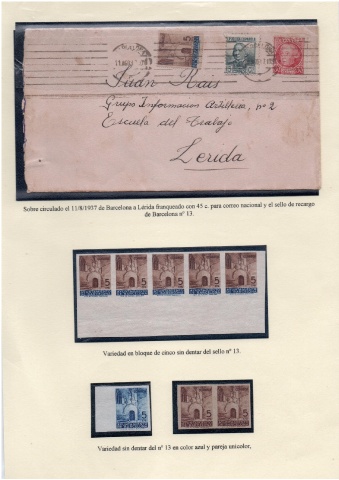 Juan Rais
Grupo Informacion Artilleria, nº 2
Escuela del Trabajo
Lerida
Sobre circulado el 11/8/1937 de Barcelona a Lérida franqueado con 45 c. para correo nacional y el sello de recargo
de Barcelona nº 13.
5 5 5 5 5
Variedad en bloque de cinco sin dentar del sello nº 13.
5 5 5
Variedad sin dentar del nº 13 en color azul y pareja unicolor,